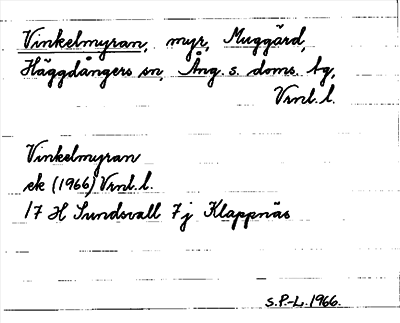 Vinkelmyran, myr, Muggård,
Häggdångers sn, Ång. s. doms. tg,
Vrnl. l.
Vinkelmyran
ek (1966) Vrnl. l.
17 H Sundsvall 7j Klappnäs
S.P.-L. 1966.